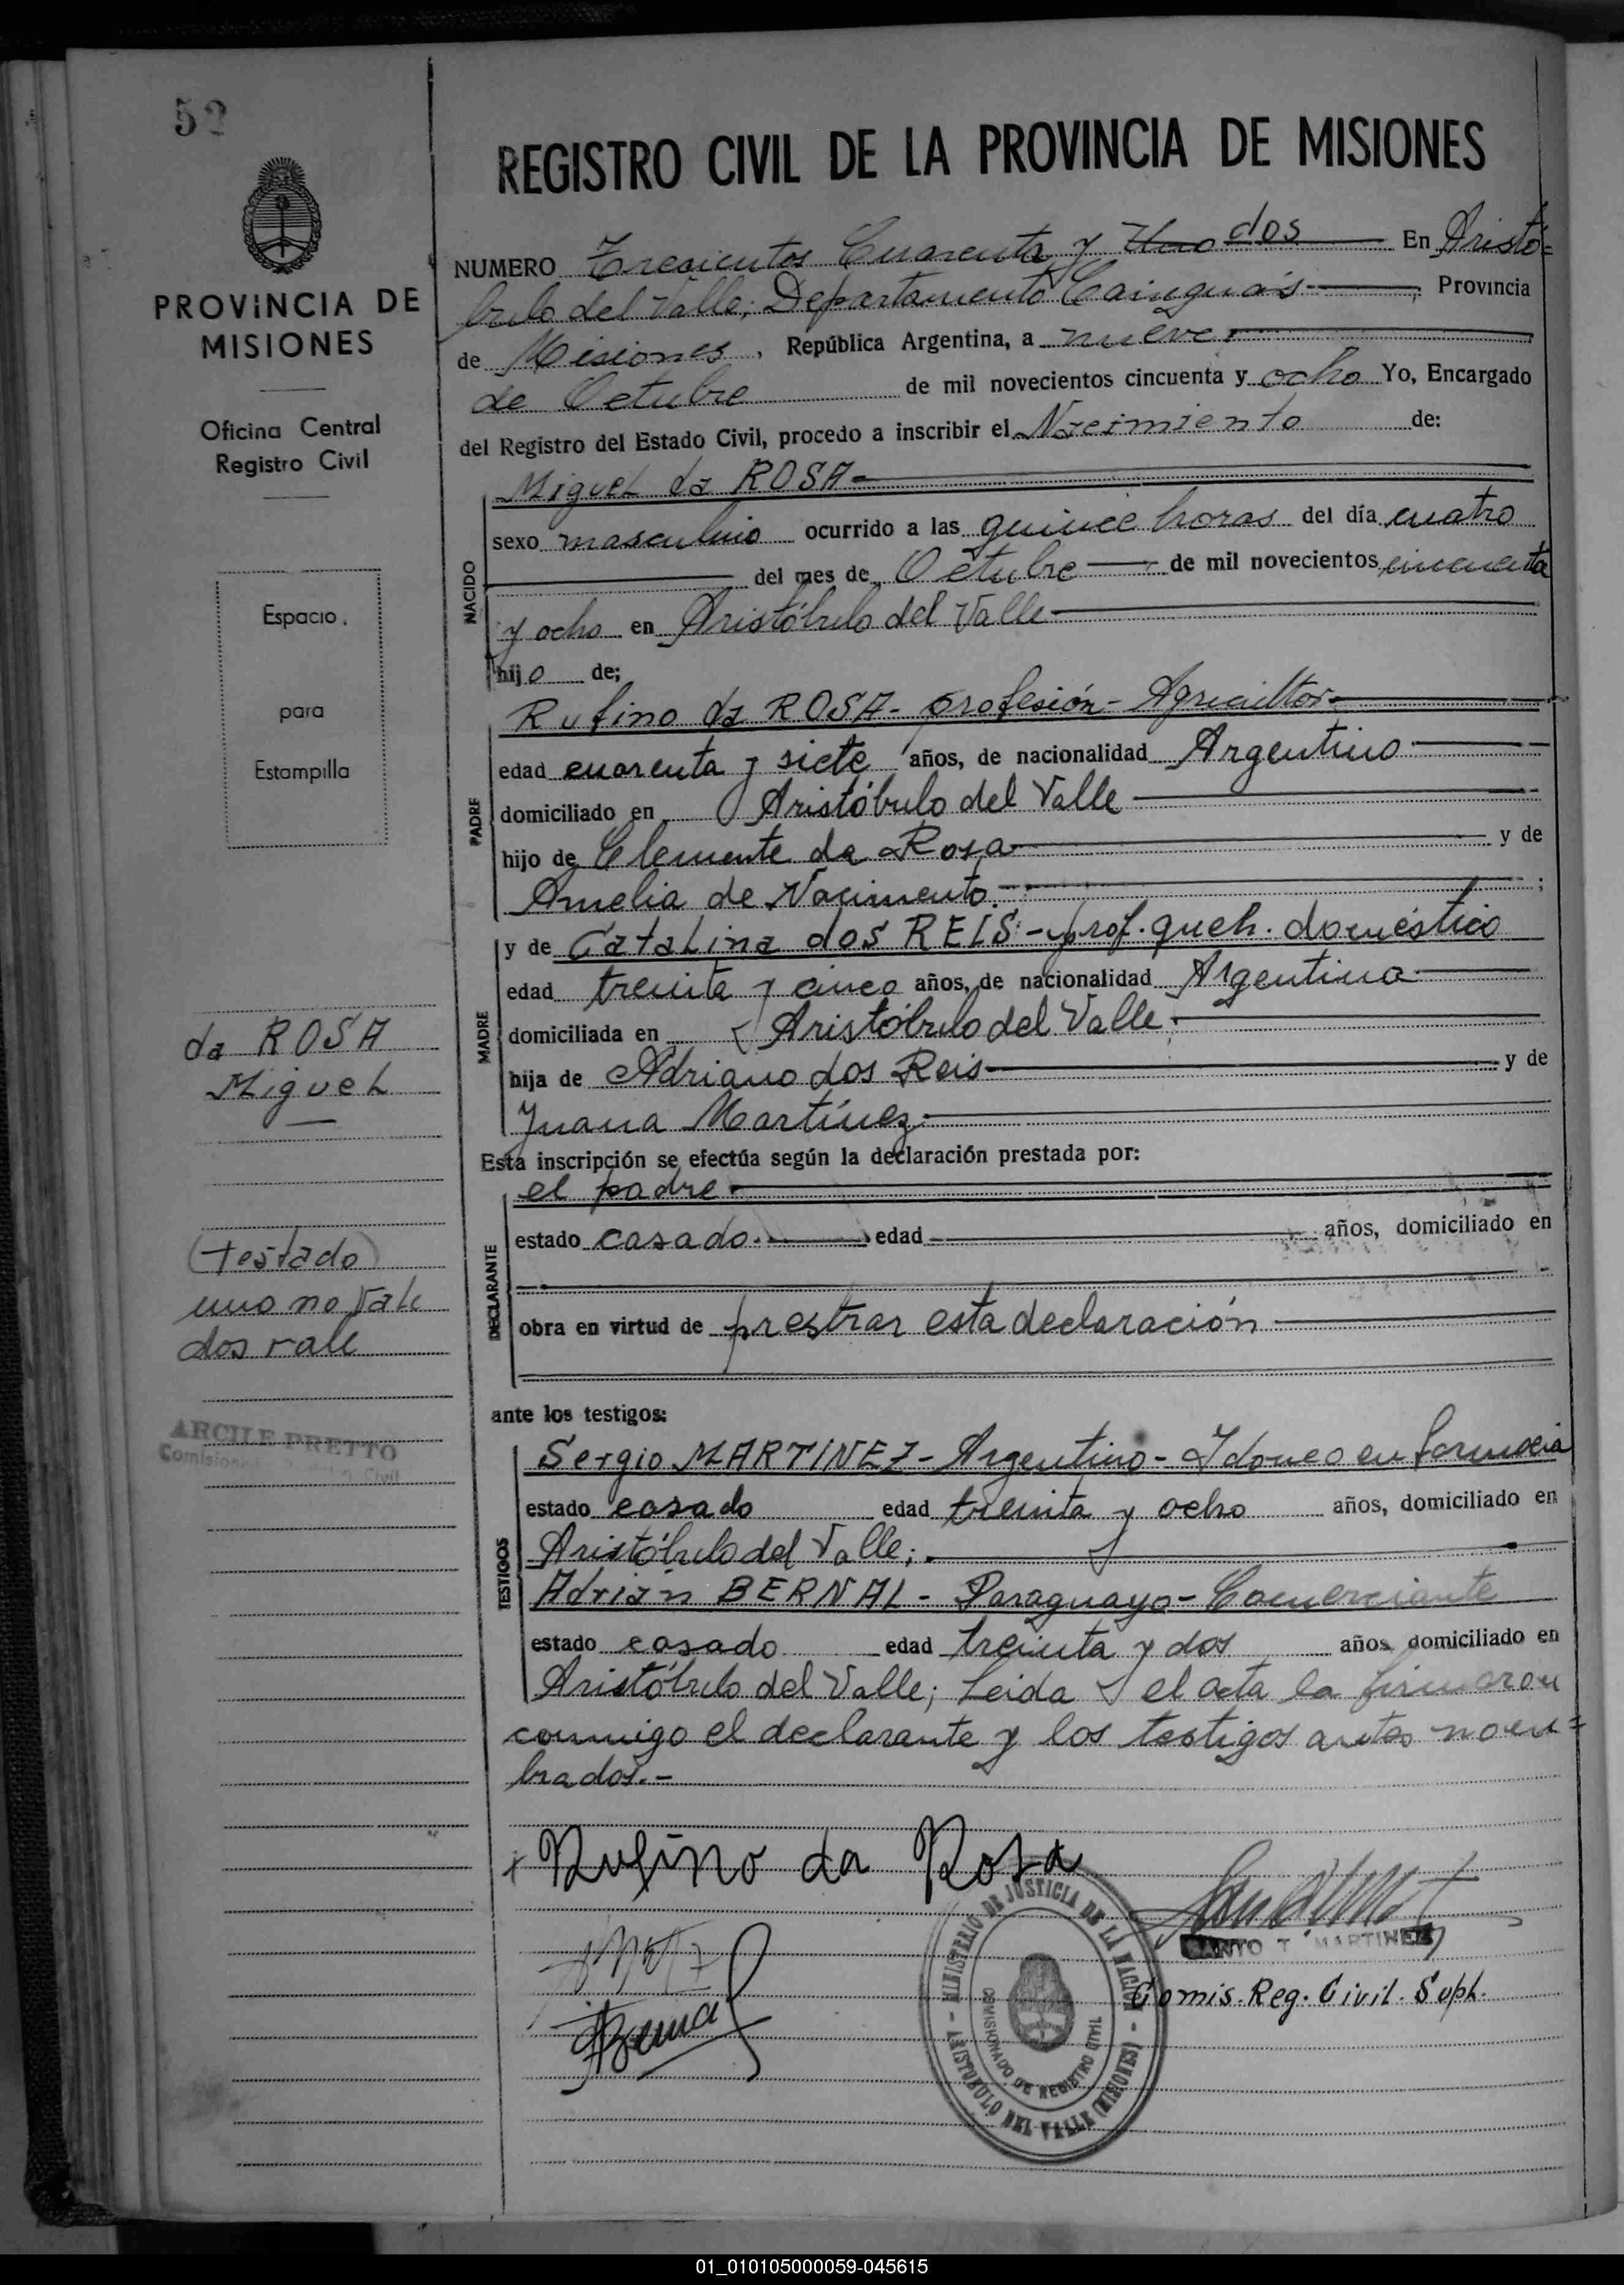 52
PROVINCIA DE
MISIONES
Oficina Central
Registro Civil
Espacio
para
Estampilla
da ROSA
Miguel
(testado)
uno no vale
dos vale
ARCILE PRETTO
REGISTRO CIVIL DE LA PROVINCIA DE MISIONES
NUMERO Trecientos Cuarenta y Uno dos En Aristó=
bulo del Valle; Departamento Cainguás Provincia
de Misiones, República Argentina, a nueve
de Octubre de mil novecientos cincuenta y ocho Yo, Encargado
del Registro del Estado Civil, procedo a inscribir el Nacimiento de:
NACIDO
Miguel da ROSA
sexo masculino ocurrido a las quince horas del día cuatro
del mes de Octubre de mil novecientos cincuenta
y ocho en Aristóbulo del Valle
hijo de;
PADRE
Rufino da ROSA- profesión- Agricultor
edad cuarenta y siete años, de nacionalidad Argentino
domiciliado en Aristóbulo del Valle
hijo de Clemente da Rosa y de
Amelia de Nacimento ;
MADRE
y de Catalina dos REIS- prof. queh. doméstico
edad treinta y cinco años, de nacionalidad Argentina
domiciliada en Aristóbulo del Valle
hija de Adriano dos Reis y de
Juana Martínez
Esta inscripción se efectúa según la declaración prestada por:
DECLARANTE
el padre
estado casado edad años, domiciliado en
obra en virtud de prestrar esta declaración
ante los testigos:
TESTIGOS
Sergio MARTINEZ- Argentino- Idoneo en farmacia
estado casado edad treinta y ocho años, domiciliado en
Aristóbulo del Valle;
Adrián BERNAL- Paraguayo- Comerciante
estado casado edad treinta y dos años domiciliado en
Aristóbulo del Valle; Leida el acta la firmaron
conmigo el declarante y los testigos antes nom=
brados.-
Rufino da Rosa
SANTO T MARTINEZ
Comis. Reg. Civil. Supl.
MINISTERIO DE JUSTICIA DE LA NACION - ARISTOBULO DEL VALLE (MISIONES)
COMISIONADO DE REGISTRO CIVIL
01_010105000059-045615